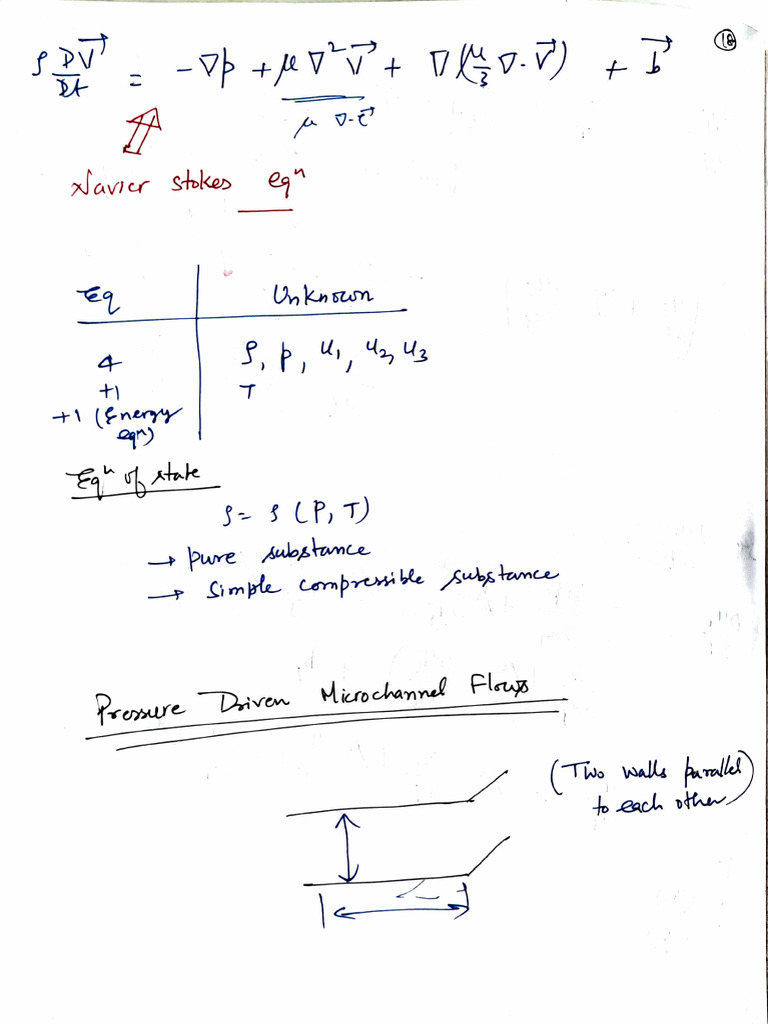 18
ρ DV⃗/Dt = -∇p + μ∇²V⃗ + ∇(μ/3 ∇·V⃗) + b⃗
μ ∇·τ⃗
Navier stokes eqⁿ
Eq | Unknown
4 | ρ, p, u₁, u₂, u₃
+1 | T
+1 (Energy
eqⁿ)
Eqⁿ of state
ρ = ρ (P, T)
→ pure substance
→ simple compressible substance
Pressure Driven Microchannel Flows
(Two walls parallel
to each other)
L